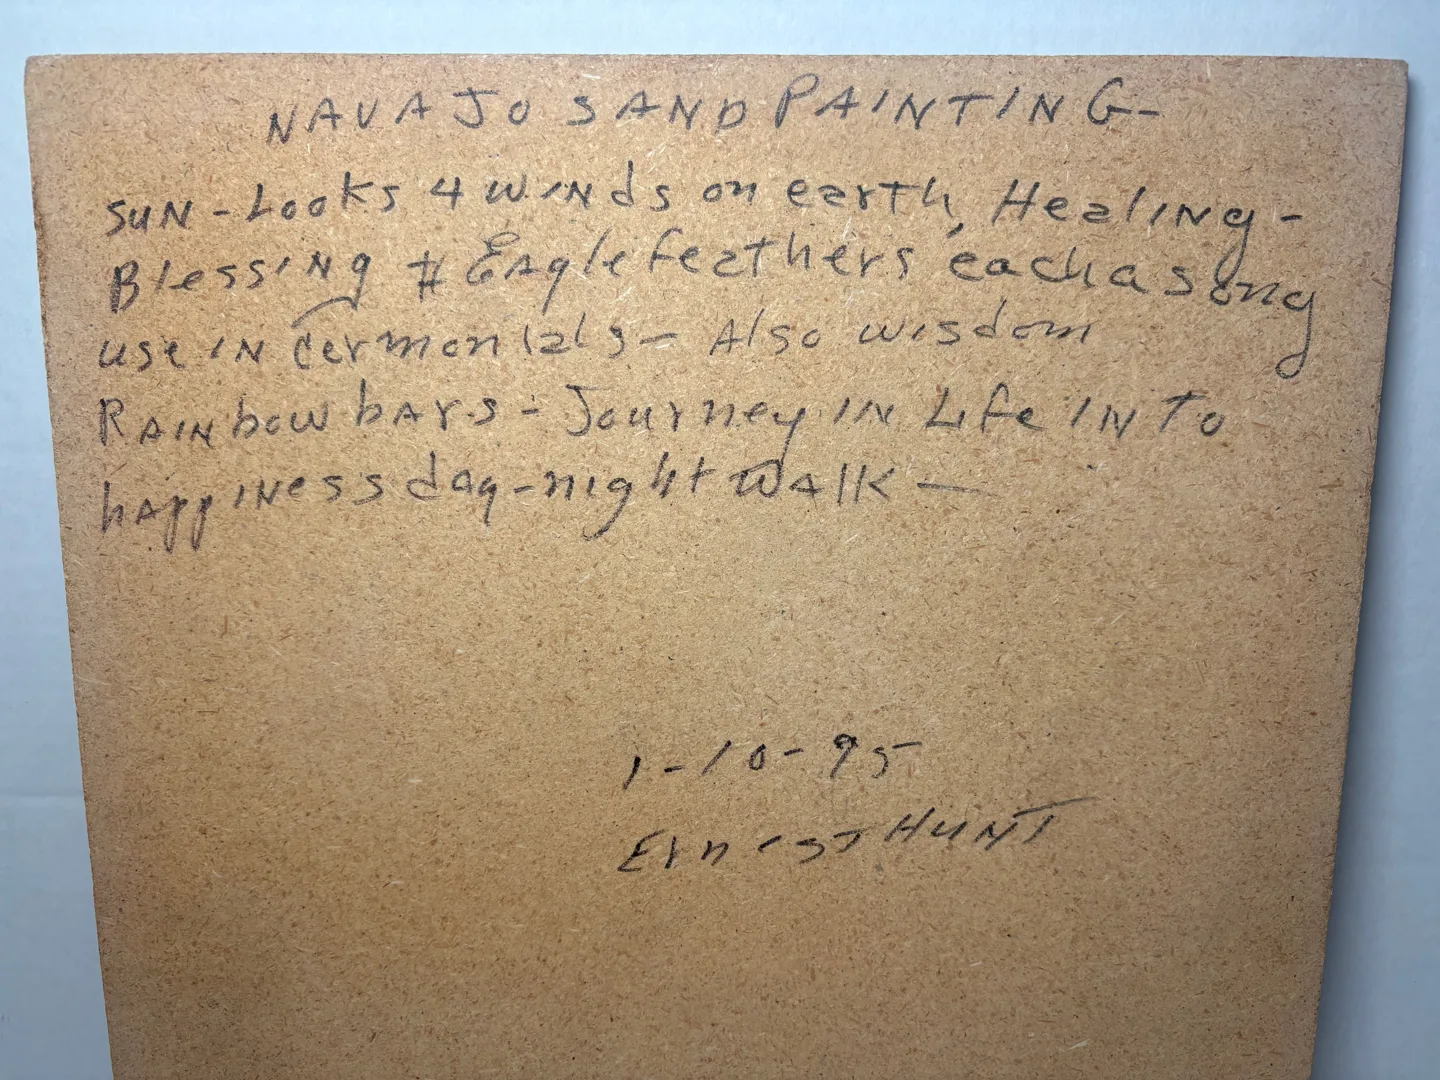 NAVAJO SAND PAINTING-
SUN - Looks 4 WINds on earth, Healing -
Blessing # Eagle feathers each a song
use IN Cermonials - Also wisdom
RAINbow bars - Journey IN Life IN To
happiness day-night walk -
1-10-95
Ernest HUNT